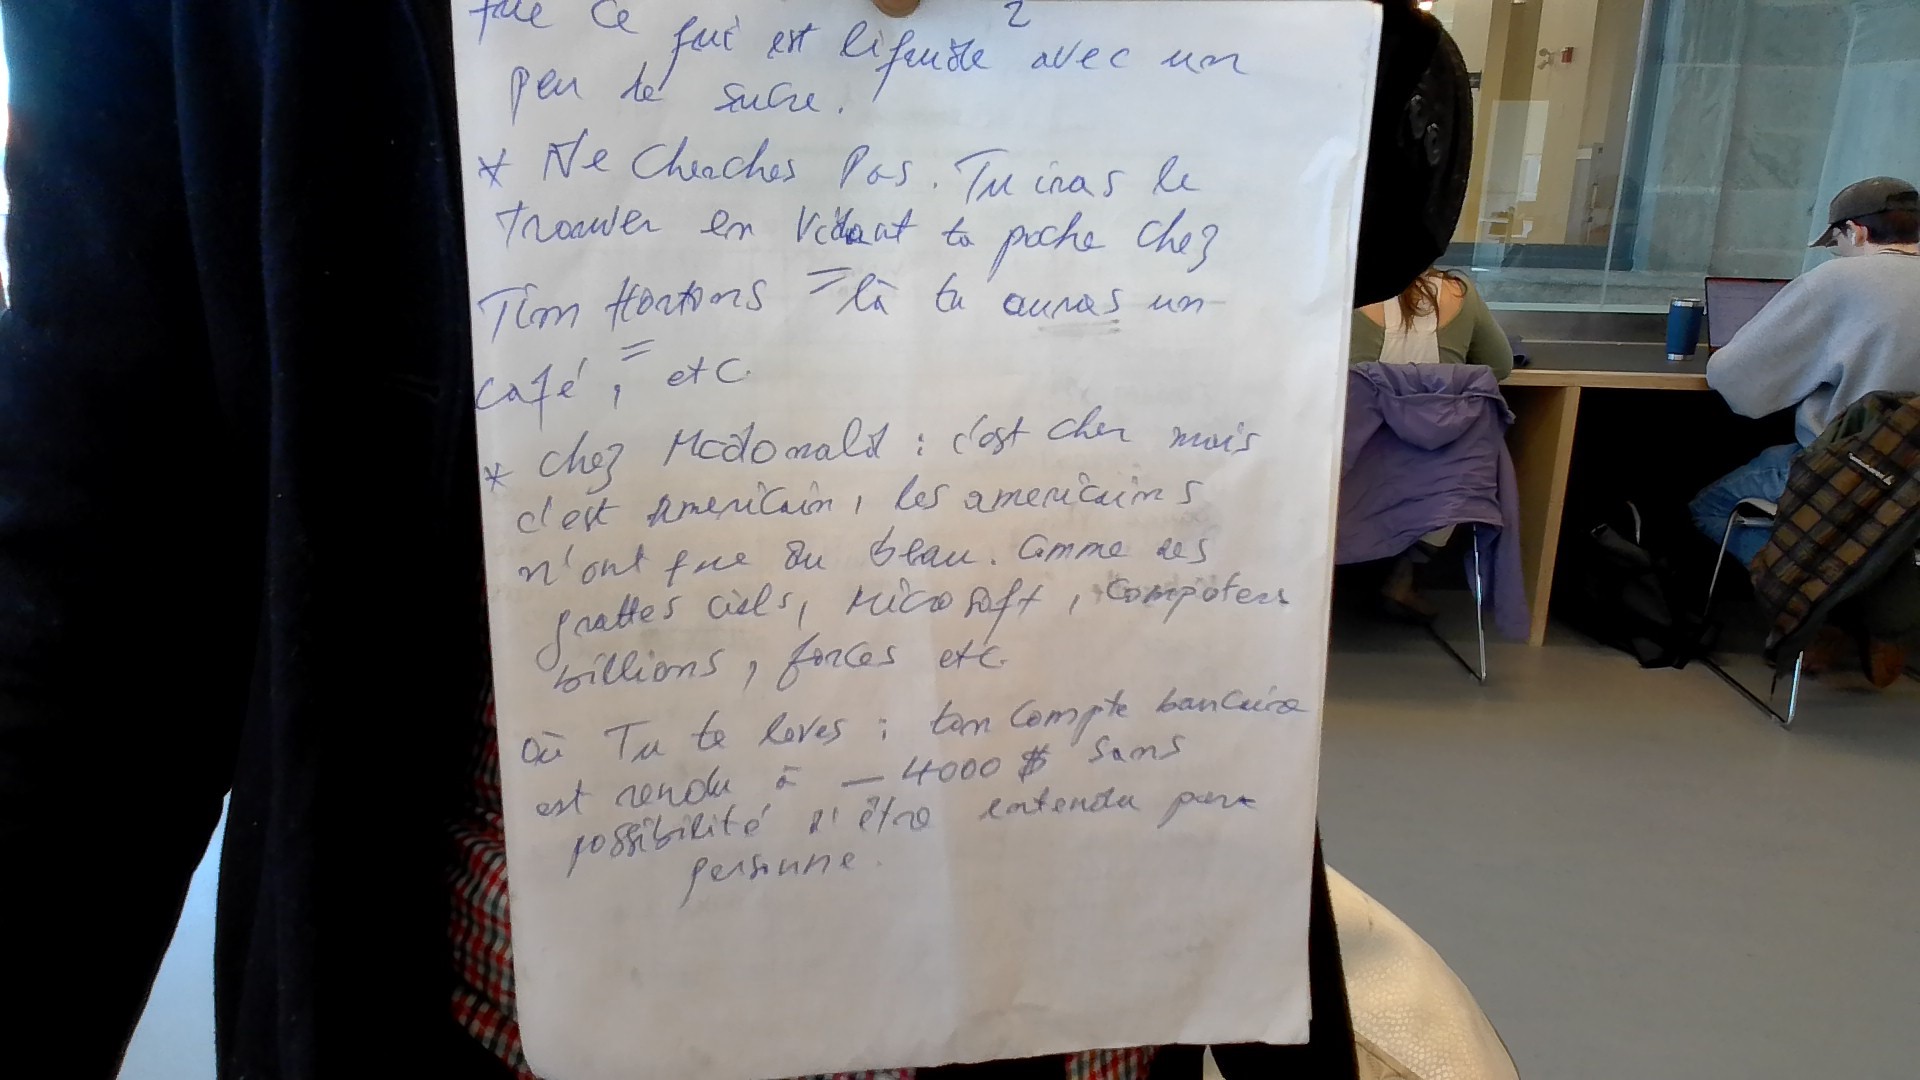 que ce
2
qui est liquide avec un
peu de sucre.
* Ne cherches Pas. Tu iras le
trouver en vidant ta poche chez
Tim Hortons = là tu auras un
café, = etc.
* chez Mcdonald : c'est cher mais
c'est americain, les americains
n'ont que du beau. Comme des
grattes ciels, Microsoft, Computers
billions, forces etc.
Où Tu te leves : ton compte bancaire
est rendu à - 4000 $ sans
possibilité d'être entendu par
personne.